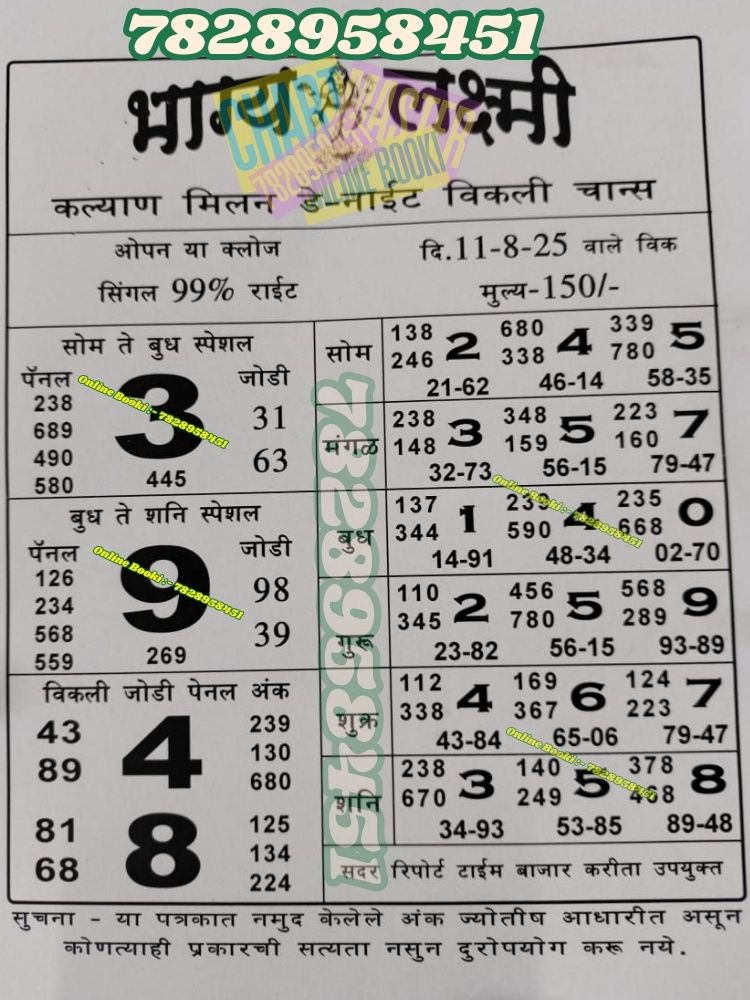 7828958451
भाग्य लक्ष्मी
CHART MASTER
7828958451
ONLINE BOOKI
कल्याण मिलन डे-नाईट विकली चान्स
ओपन या क्लोज
सिंगल 99% राईट
दि.11-8-25 वाले विक
मुल्य-150/-
सोम ते बुध स्पेशल
पॅनल 3 जोडी
Online Booki :- 7828958451
238
689 31
490 63
580 445
बुध ते शनि स्पेशल
पॅनल 9 जोडी
Online Booki :- 7828958451
126 98
234
568 39
559 269
विकली जोडी पेनल अंक
43 4 239
89 130
680
81 8 125
68 134
224
सोम
138 2 680 4 339 5
246 338 780
21-62 46-14 58-35
मंगळ
238 3 348 5 223 7
148 159 160
32-73 56-15 79-47
Online Booki :- 7828958451
बुध
137 1 239 4 235 0
344 590 668
14-91 48-34 02-70
गुरू
110 2 456 5 568 9
345 780 289
23-82 56-15 93-89
शुक्र
112 4 169 6 124 7
338 367 223
43-84 65-06 79-47
Online Booki :- 7828958451
शनि
238 3 140 5 378 8
670 249 468
34-93 53-85 89-48
7828958451
सदर रिपोर्ट टाईम बाजार करीता उपयुक्त
सुचना - या पत्रकात नमुद केलेले अंक ज्योतीष आधारीत असून
कोणत्याही प्रकारची सत्यता नसुन दुरोपयोग करू नये.